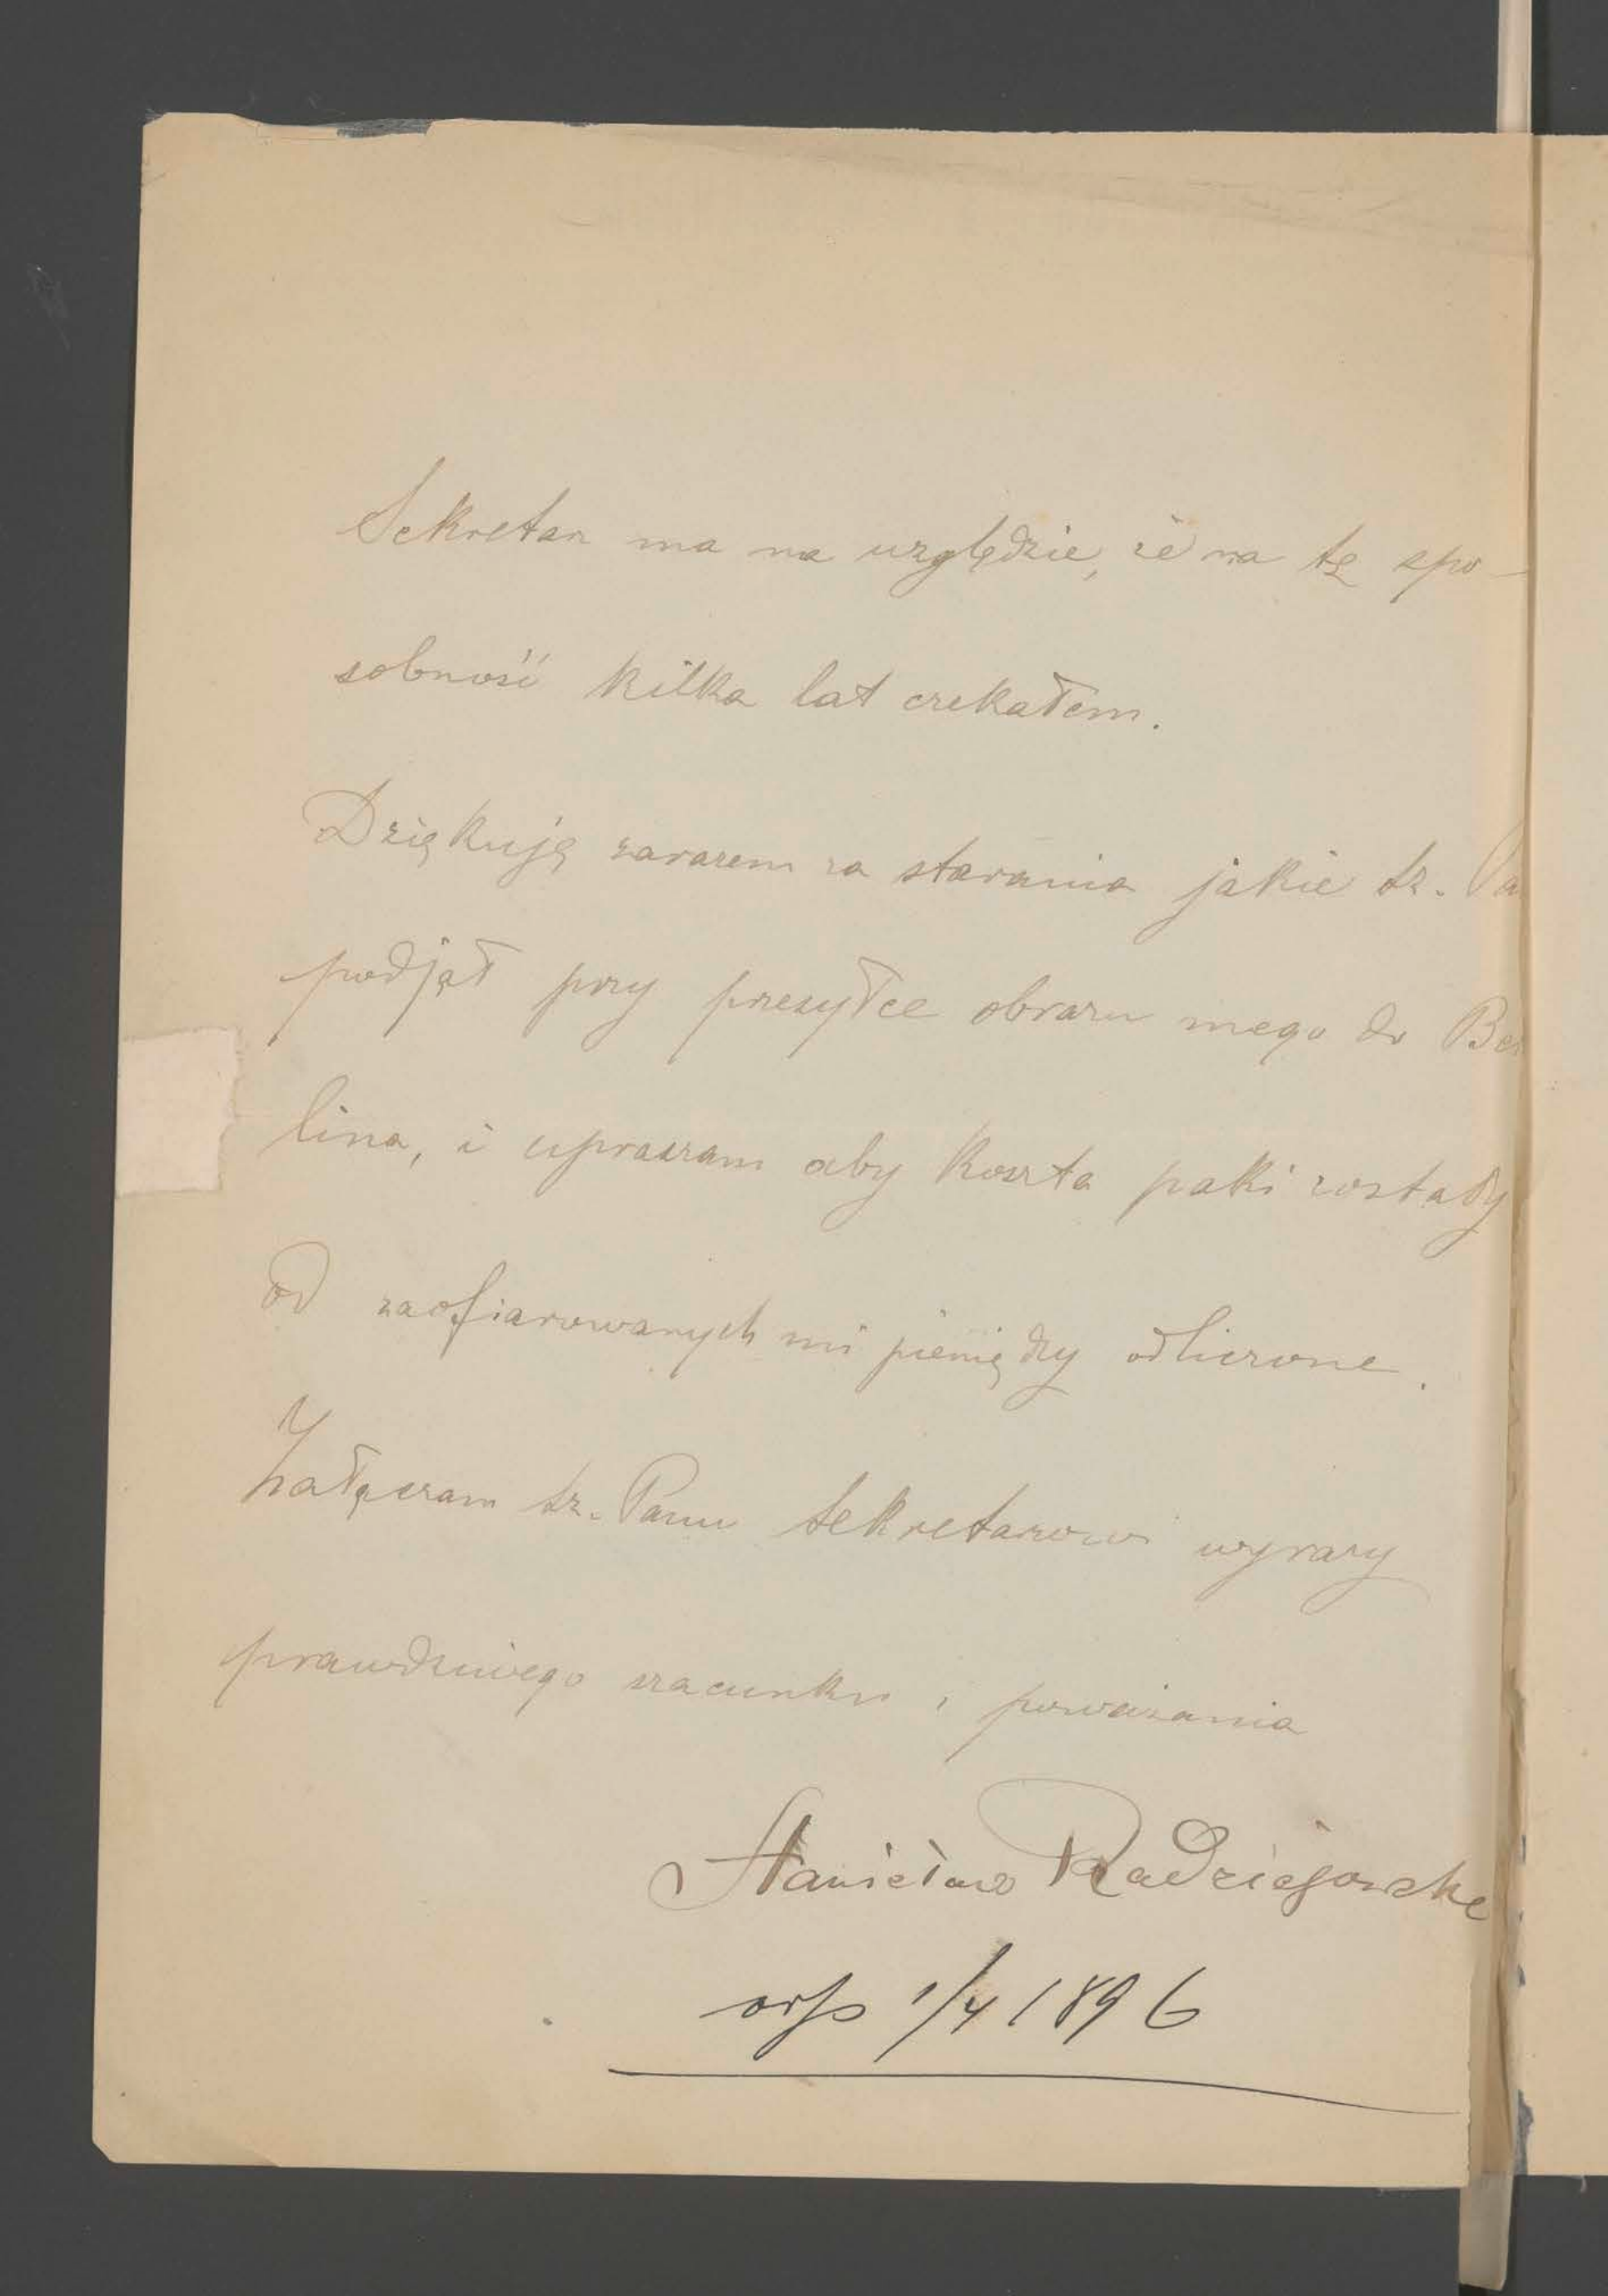 Sekretarz ma na względzie, że na tę spo-
sobność kilka lat czekałem.
Dziękuję zarazem za starania jakie Sz. Pa
podjął przy przesyłce obrazu mego do Ber
lina, i upraszam aby koszta paki zostały
od zaofiarowanych mi pieniędzy odliczone.
Załączam Sz. Panu Sekretarzowi wyrazy
prawdziwego szacunku i poważania
Stanisław Radziejowski
1/4 1896